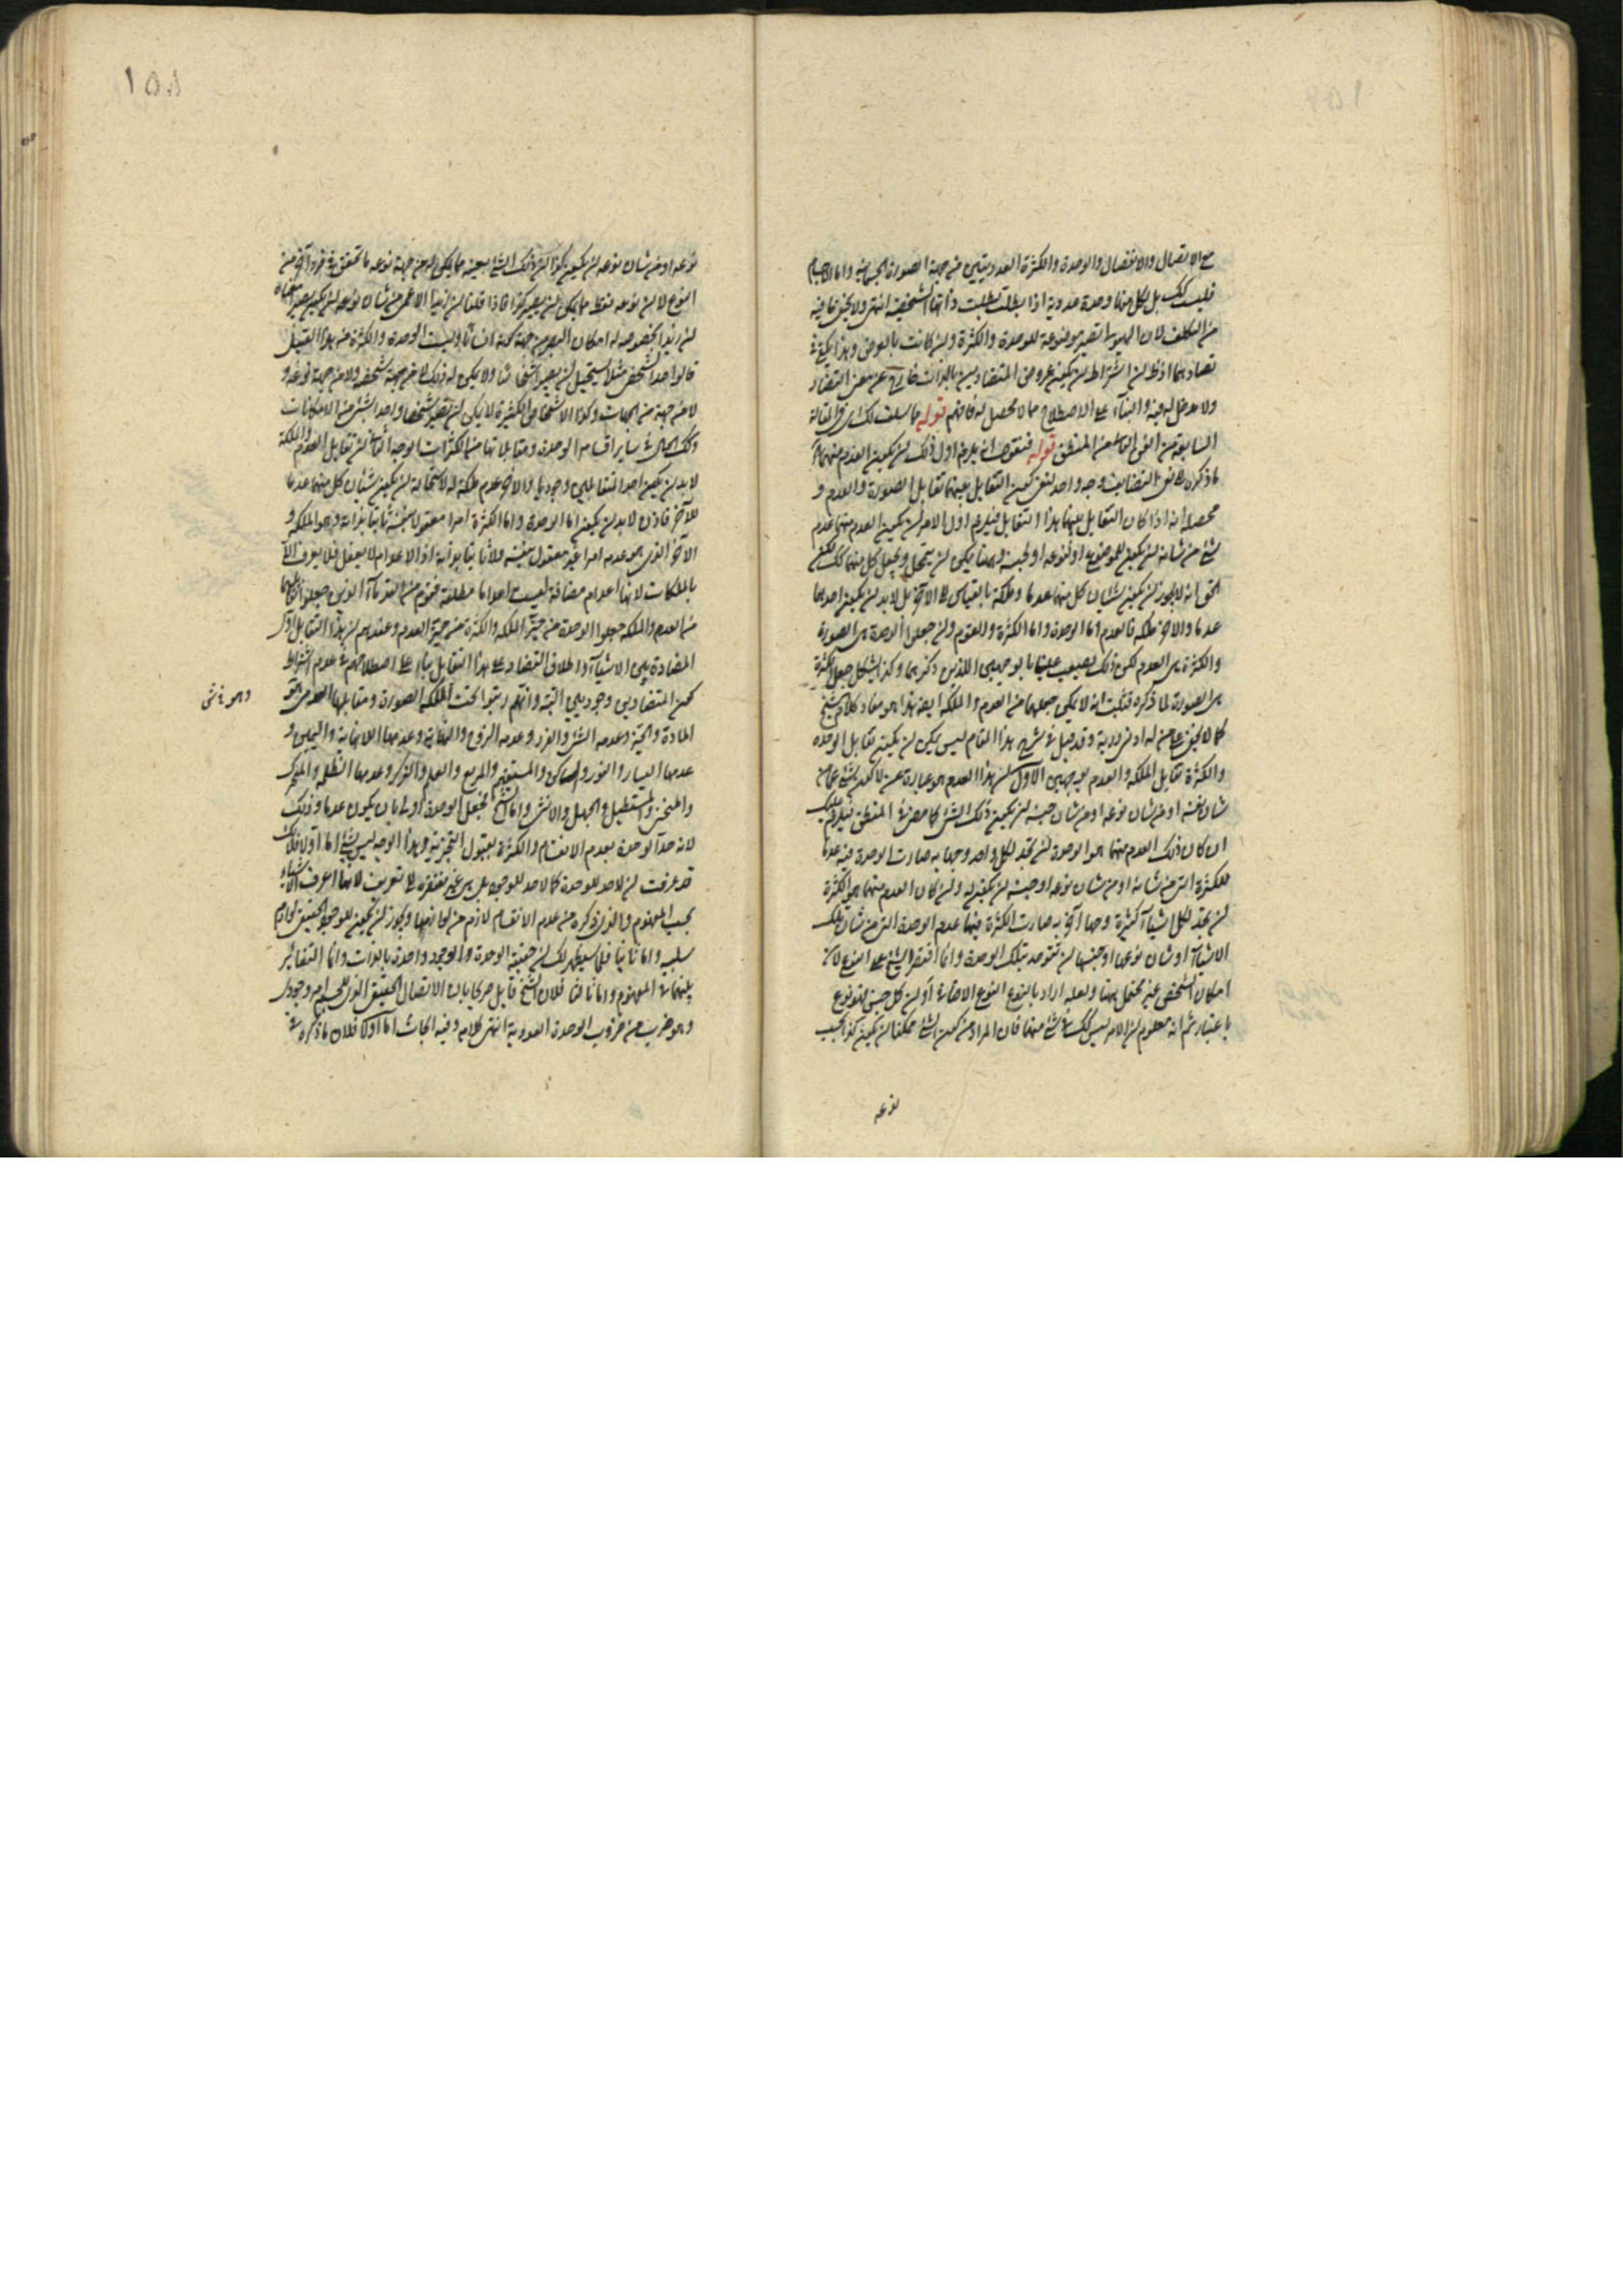 مع الاتصال والانفصال والوحدة والكثرة العدديتين من جهة الصورة الجسمانية واما الاجسام
فليست كك بل لكل منها وحدة عددية اذا بطلت بطلت ذاتها الشخصية انتهى ولا يخفى ما فيه
من التكلف لان الهيولى تصير موضوعة للوحدة والكثرة وان كانت بالعرض وهذا يكفى فى
تضادهما اذ ظ ان اشتراط ان يكون عروض المتضادين بالذات خارج عن معنى التضاد
ولا مدخل له فيه والبناء على الاصطلاح مما لا محصل له فافهم قوله ما سلف لك فى المقالة
السابعة من الفن الثانى من المنطق قوله فنقول انه يلزم اول ذلك ان يكون العدم منهما
ما ذكره فى نفى التضايف وجه واحد لنفى كون التقابل بينهما تقابل الصورة والعدم و
محصله انه اذا كان التقابل بينهما هذا التقابل فيلزم اول الامر ان يكون العدم منهما عدم
شئ من شانه ان يكون للموضوع او لنوعه او لجنسه وهنا يمكن ان يتحمل ويجعل كل منهما كك لكن
الحق انه لا يجوز ان يكون شيئان كل منهما عدما وملكة بالقياس الى الآخر بل لا بد ان يكون احدهما
عدما والاخر ملكه فالعدم اما الوحدة واما الكثرة والقوم وان جعلوا الوحدة هى الصورة
والكثرة هى العدم لكن ذلك يصعب علينا بالوجهين اللذين ذكرهما وكذا يشكل جعل الكثرة
هى الصورة لما ذكره فثبت انه لا يمكن جعلهما من العدم والملكة ايضا هذا هو مفاد كلام الشيخ
كما لا يخفى على من له ادنى دربة وقد قيل فى شرح هذا المقام ليس يمكن ان يكون تقابل الوحدة
والكثرة تقابل الملكه والعدم بوجهين الاول ان هذا العدم هو عبارة عن لا كون شئ عما من
شان نفسه او من شان نوعه او من شان جنسه ان يكون ذلك الشئ كما مضى فى المنطق فيلزم عليك
ان كان ذلك العدم منهما هو الوحدة ان تجد لكل واحد وجها به صارت الوحدة فيه عدما
للكثرة التى من شانه او من شان نوعه او جنسه ان يكون له وان كان العدم منهما هو الكثرة
ان تجد لكل اشياء كثيرة وجها آخر به صارت الكثرة فيها عدم الوحدة التى من شان تلك
الاشياء او شان نوعها او جنسها ان تتوحد بتلك الوحدة وانما اقتصر الشيخ على النوع لان
امكان الشخص غير محتمل هنا ولعله اراد بالنوع النوع الاضافى او ان كل جنس فهو نوع
باعتبار ثم انه معلوم ان الامر ليس كك فى شئ منهما فان المراد من كون الشئ ممكنا ان يكون كذا بحسب
نوعه
١٥٨
نوعه او من شان نوعه ان يكون كذا ان ذلك الشئ بعينه مما يمكن له من جهة نوعه ما تحقق فى فرد آخر من
النوع لا ان نوعه فقط مما يمكن ان يصير كذا فاذا قلنا ان زيدا الاعمى من شان نوعه ان يكون بصيرا معناه
ان زيدا بخصوصه له امكان البصر من جهة كونه انسانا وليست الوحدة والكثرة من هذا القبيل
فالواحد الشخصى مثلا يستحيل ان يصير اشخاصا ولا يمكن له ذلك لا من جهة شخصه ولا من جهة نوعه و
لا من جهة من الجهات وكذا الاشخاص الكثيرة لا يمكن ان تصير شخصا واحدا بشئ من الامكانات
وكك الحال فى ساير اقسام الوحدة ومقابلاتها من الكثرات الوجه الثانى ان تقابل العدم والملكة
لا بد ان يكون احد المتقابلين وجوديا والاخر عدم ملكة له لاستحالة ان يكون شيئان كل منهما عدما
للآخر فاذن لا بد ان يكون اما الوحدة واما الكثرة امرا معقولا بنفسه ثابتا بذاته وهو الملكة و
الآخر الذى هو عدمه امرا غير معقول بنفسه ولا ثابتا بذاته اذ الاعدام لا يعقل فلا يعرف الا
بالملكات لانها اعدام مضافة ليست اعداما مطلقة فقوم من القدماء الذين جعلوا تقابلهما
من العدم والملكه جعلوا الوحدة من حيز الملكه والكثرة من حيز العدم وعندهم ان هذا التقابل اول
المضادة بين الاشياء واطلاق التضاد على هذا التقابل بناء على اصطلاحهم فى عدم اشتراط
كون المتضادين وجوديين البتة وانهم رتبوا تحت الملكه الصورة ومقابلها العدم
وهو
المادة والخير وعدمه الشر والفرد وعدمه الزوج والنهاية وعدمها اللانهاية واليمين و
عدمها اليسار والنور والساكن والمستقيم والمربع والعلم والذكر وعدمها الظلمه والمتحرك
والمنحنى والمستطيل والجهل والانثى واما الشيخ فجعل الوحدة اولى بان يكون عدما وذلك
لانه حد الوحدة بعدم الانقسام والكثرة بقبول التجزية وهذا الوجه ليس بشئ اما اولا فلانك
قد عرفت ان لا حد للوحدة كما لا حد للوجود بل هى غير مفتقرة الى تعريف لانها اعرف الاشياء
بحسب المفهوم والذى ذكره من عدم الانقسام لازم من لوازمها ويجوز ان يكون للوجود الحقيقى لوازم
سلبيه واما ثانيا فلما سيظهر لك ان حقيقة الوحدة والوجود واحدة بالذات وانما التغاير
بينهما فى المفهوم واما ثالثا فلان الشيخ قايل صريحا بان الاتصال الحقيقى الذى للجسم امر وجودى
وهو ضرب من ضروب الوحدة العددية انتهى كلامه وفيه ابحاث اما اولا فلان ما ذكره فى